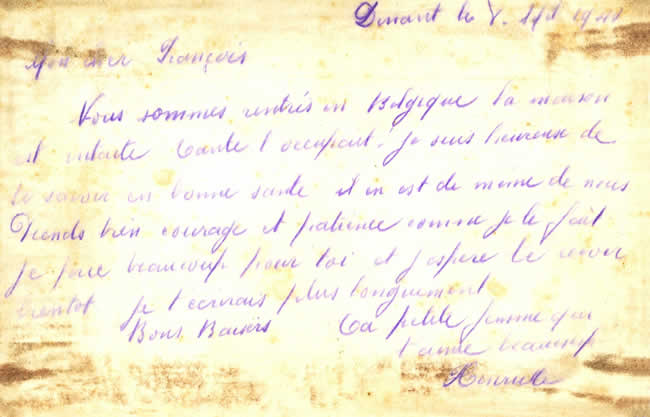 Dinant le 8. Sept 1940
Mon cher François
Nous sommes rentrés en Belgique la maison
est intacte tante l'occupait. Je suis heureuse de
te savoir en bonne santé il en est de meme de nous
Prends bien courage et patience comme je le fait
Je prie beaucoup pour toi et j'espere te revoir
bientot Je t'ecrirais plus longuement
Bons Baisers Ta petite femme qui
t'aime beaucoup
Henriette